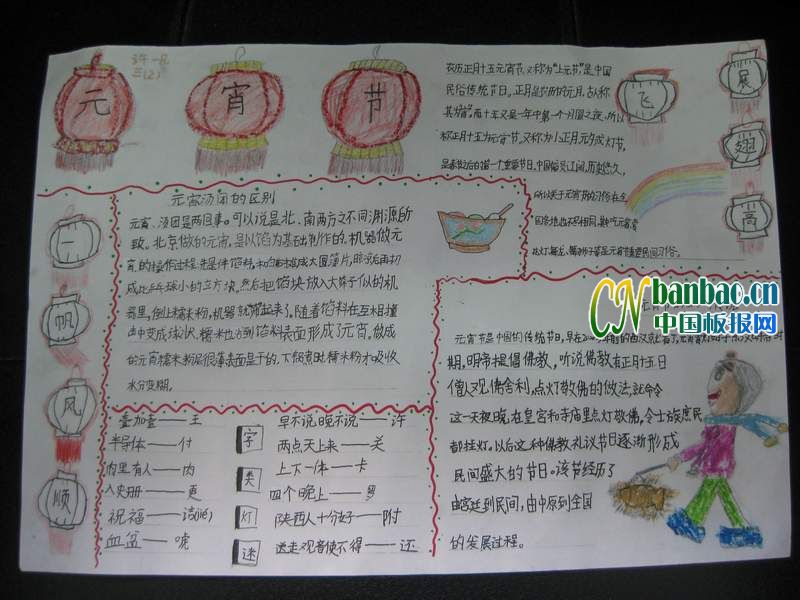 许一凡
三(2)
元 宵 节
农历正月十五元宵节,又称为"上元节"是中国
民俗传统节日。正月是农历的元月,古人称
其为"宵",而十五又是一年中第一个月圆之夜,所以
称正月十五为元宵节,又称为小正月元夕或灯节,
是春节之后的第一个重要节日。中国幅员辽阔,历史悠久,
所以关于元宵节的习俗在全
国各地也不尽相同,
展
飞
翅
高
一
帆
风
顺
元宵汤团的区别
元宵、汤团是两回事。可以说是北、南两方之不同渊源所
致。北京做的元宵,是以馅为基础制作的。机器做元
宵的操作过程:先是伴馅料,和匀后摊成大圆薄片,晾凉后再切
成比乒乓球小的立方块。然后把馅块放入大筛子似的机
器里,倒上糯米粉,机器就筛起来了。随着馅料在互相撞
击中变成球状,糯米也沾到馅料表面形成了元宵。做成
的元宵糯米粉层很薄表面是干的。下锅煮时糯米粉才吸收
水分变糊。
叠加查——王
半导体——付
内里有人——肉
入史册——更
祝福——
血盆——唬
字
类
灯
迷
早不说晚不说——许
两点天上来——关
上下一体——卡
四个晚上——罗
陕西人十分好——附
送走观音使不得——还
元宵节是中国的传统节日,早在
期,明帝提倡佛教,听说佛教有正月十五日
僧人观佛舍利,点灯敬佛的做法,就命令
这一天夜晚,在皇宫和寺庙里点灯敬佛,令士族庶民
都挂灯。以后这种佛教礼议节日逐渐形成
民间盛大的节日。该节经历了
由宫廷到民间,由中原到全国
的发展过程。
CN banbao.cn
中国板报网